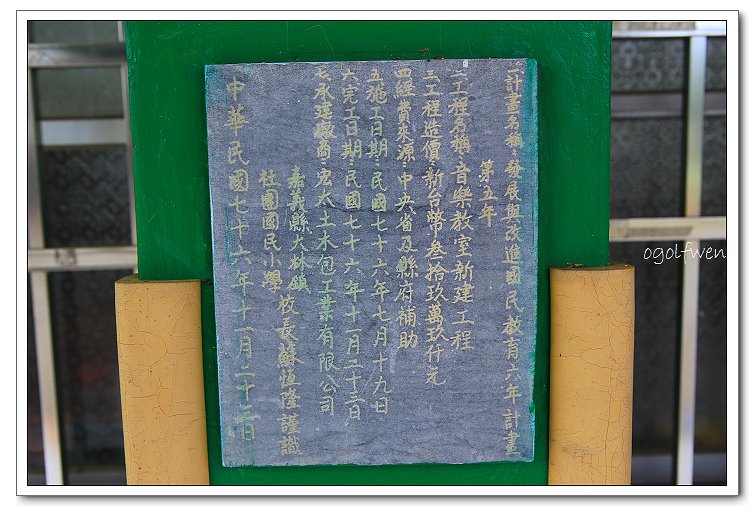 一計畫名稱:發展與改進國民教育六年計畫
第五年
二工程名稱:音樂教室新建工程
三工程造價:新台幣叁拾玖萬玖仟元
四經費來源:中央省及縣府補助
五施工日期:民國七十六年七月十九日
六完工日期:民國七十六年十一月二十三日
七承建廠商:宏太土木包工業有限公司
嘉義縣大林鎮
社團國民小學
校長蘇恆隆謹識
中華民國七十六年十一月二十二日
ogolfwen